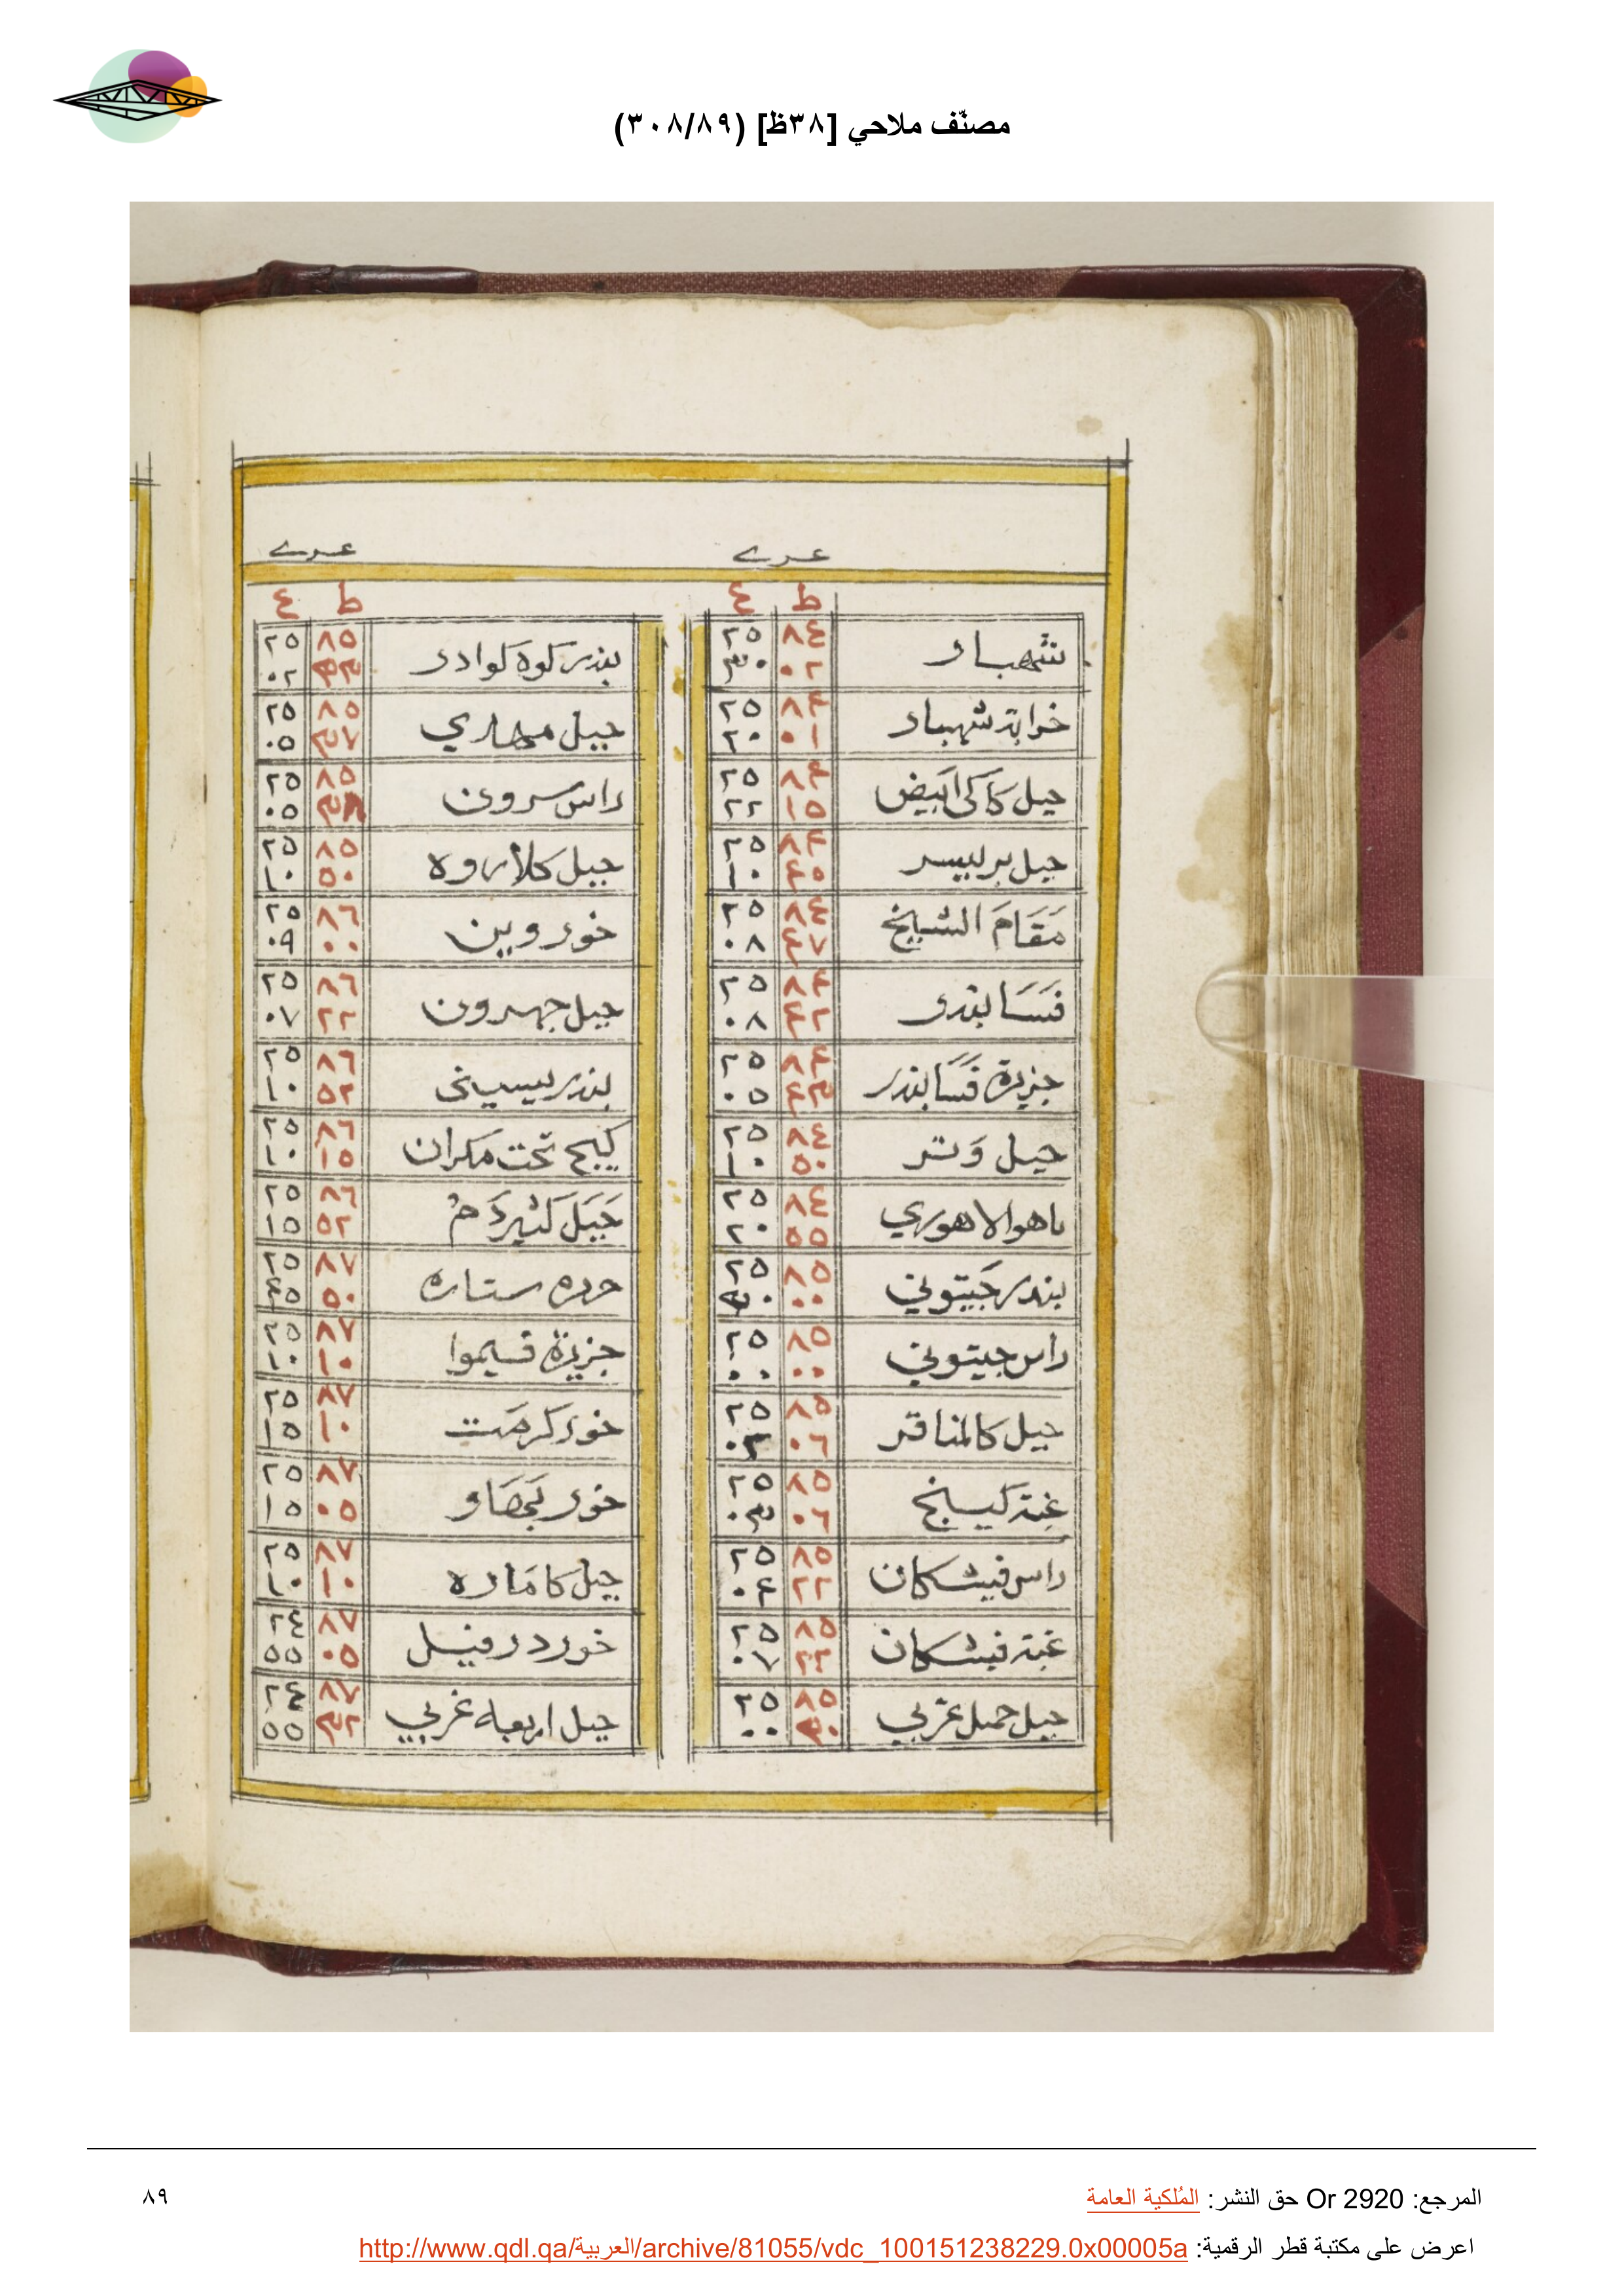 مصنّف ملاحي [٣٨ظ] (٣٠٨/٨٩)
عرے
عرے
ط ع
ط ع
شهبار ٨٤ ٠٢ ٢٥ ٣٠
خرابة شهبار ٨٤ ٠١ ٢٥ ٢٠
جبل كاكى ابيض ٨٤ ١٥ ٢٥ ٢٢
جبل بربيسر ٨٤ ٤٥ ٢٥ ١٠
مَقَامَ الشيخ ٨٤ ٤٧ ٢٥ ٠٨
فَسَا بندر ٨٤ ٤٢ ٢٥ ٠٨
جزيرة فَسَا بندر ٨٤ ٤٣ ٢٥ ٠٥
جبل وَتر ٨٤ ٥٠ ٢٥ ١٠
ماهوالاهوري ٨٤ ٥٥ ٢٥ ٢٠
بندر جَيتوني ٨٥ ٠٠ ٢٥
راس جيتوني ٨٥ ٠٠ ٢٥ ٠٠
جبل كالمناقر ٨٥ ٠٦ ٢٥ ٠٣
غبة كيسنج ٨٥ ٠٦ ٢٥ ٠٣
راس فيشكان ٨٥ ٢٢ ٢٥ ٠٤
غبة فيشكان ٨٥ ٢٢ ٢٥ ٠٧
جبل جمل غربي ٨٥ ٣٠ ٢٥ ٠٠
بندر كوه كوادر ٨٥ ٣٣ ٢٥ ٠٢
جبل مهاري ٨٥ ٣٧ ٢٥ ٠٥
راس سرون ٨٥ ٣٨ ٢٥ ٠٥
جبل كلاروه ٨٥ ٥٠ ٢٥ ١٠
خور وبين ٨٦ ٠٠ ٢٥ ٠٩
جبل جهرون ٨٦ ٢٢ ٢٥ ٠٧
بندر بيسينى ٨٦ ٥٢ ٢٥ ١٠
كيج تحت مكران ٨٦ ١٥ ٢٥ ١٠
جَبَل ٨٦ ٥٢ ٢٥ ١٥
ستاره ٨٧ ٥٠ ٢٥ ٤٥
جزيرة قسيموا ٨٧ ١٠ ٢٥ ١٠
خور كرمَت ٨٧ ١٠ ٢٥ ١٥
خور ٨٧ ٠٥ ٢٥ ١٥
جبل كامَاره ٨٧ ١٠ ٢٥ ١٠
خور درفيل ٨٧ ٠٥ ٢٤ ٥٥
جبل اربعه غربي ٨٧ ٣٢ ٢٤ ٥٥
المرجع: Or 2920 حق النشر: المُلكية العامة
٨٩
اعرض على مكتبة قطر الرقمية: http://www.qdl.qa/العربية/archive/81055/vdc_100151238229.0x00005a